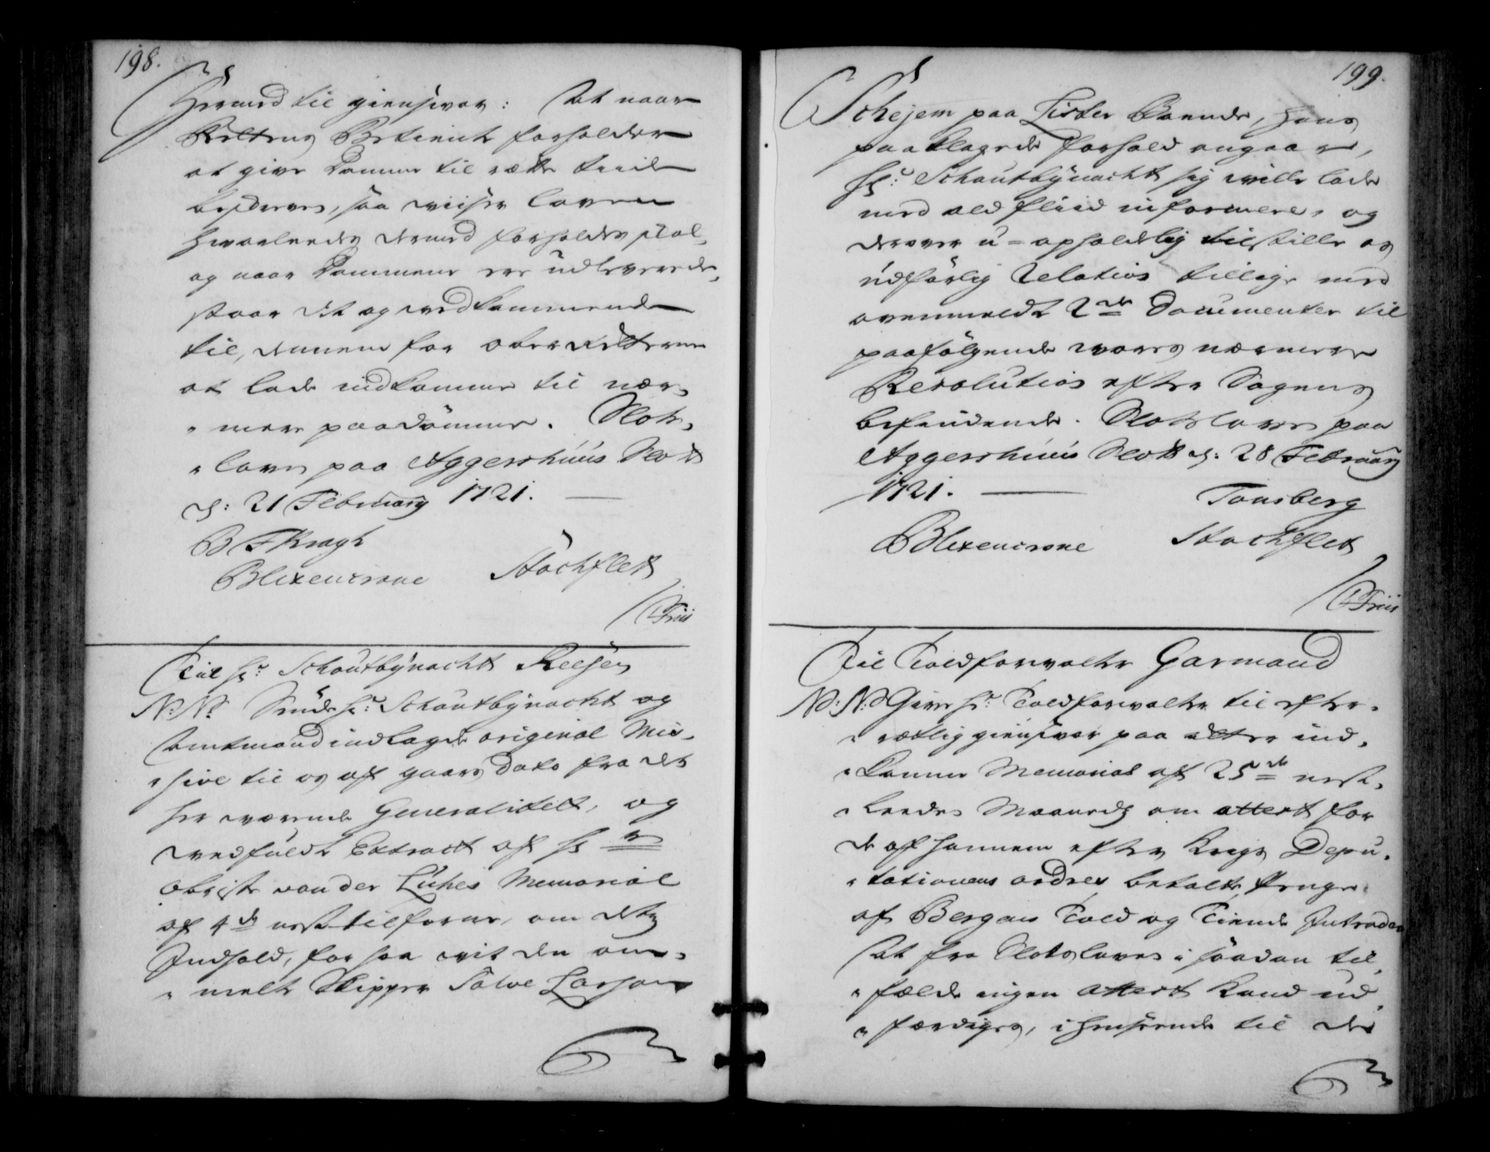 198.
Hermed til giensvar: At naar
Rettens Betiente forholder
at give Domme til rætte tiid
beskreven, saa viiser loven
hvorledes dermed forholdes skal,
og naar Dommene ere udleverede,
staar dit og vedkommende
til, dennem for oberretterne
at lade indkomme til nær,
mere paadømme. Slots,
lovven paa Aggershuus Slott
d: 21 February 1721.
B F Kragh
Blixencrone Stochflett
/ Friis
Til hr: Schoutbynacht Reesen
N: N: Sende hr: Schoutbynacht og
Amtmand indlagde original Mis,
sive til os af gaars dato fra det
her værende Generalitett, og
vedfuldt Extract af hr
Obriste von der Lühes Memorial
af 4de nest tilforne, om dets
Indhold, for saa vit den om,
melte Skipper Salve Larsen
199.
Schejem paa Lister Boende, hans
paaklagede forhold angaar,
hr: Schoutbynacht sig ville lade
med ald fliid informere, og
derover u-opholdelig tilstille os
udførlig Relation tillige med
ovenmeldte 2de Documenter til
paafølgende vores nærmere
Resolution efter Sagens
befindende. Slotsloven paa
Aggershuus Slott d: 28 February
1721. Tonsberg
Blixencrone Stochflet
/ Friis
Til Toldforvalter Garmand
N: N: Give hr: Toldforvalter til efter,
rætlig giensvar paa dette ind,
komne Memorial af 25de nest,
leedne Maaneds om attest for
de af hannem efter Krigs Depu,
tationens ordres betalte Penge
af Bergens Told og Tiende Intrader
At fra Slotsloven i saadan til,
fælde ingen attest kand ud,
færdiges, i henseende til de